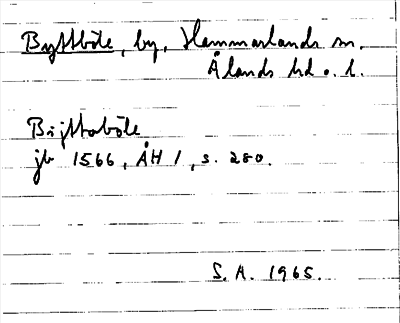 Byttböle, by, Hammarlands sn.
Ålands hd o. l.
Bijttaböle
jb 1566, ÅH 1, s. 280.
S. A. 1965.